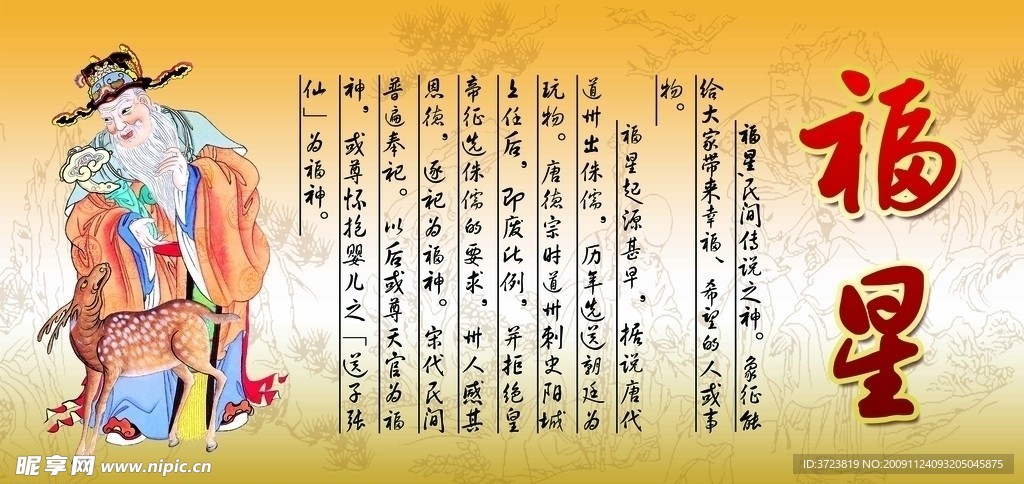 福星
福星，民间传说之神。象征能
给大家带来幸福、希望的人或事
物。
福星起源甚早，据说唐代
道州出侏儒，历年选送朝廷为
玩物。唐德宗时道州刺史阳城
上任后，即废此例，并拒绝皇
帝征选侏儒的要求，州人感其
恩德，逐祀为福神。宋代民间
普遍奉祀。以后或尊天官为福
神，或尊怀抱婴儿之「送子张
仙」为福神。
昵享网 www.nipic.cn
ID:3723819 NO:20091124093205045875